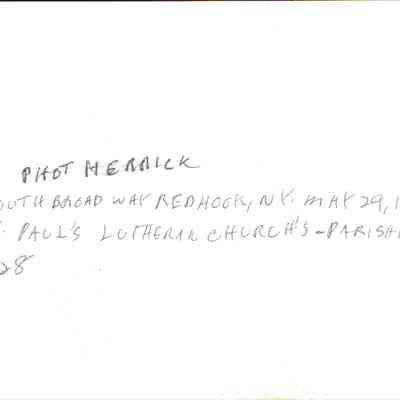 PHOT HERRICK
OUTH BROADWAY RED HOOK, NY. MAY 29, 1
. PAUL'S LUTHERAN CHURCH'S - PARISH
28